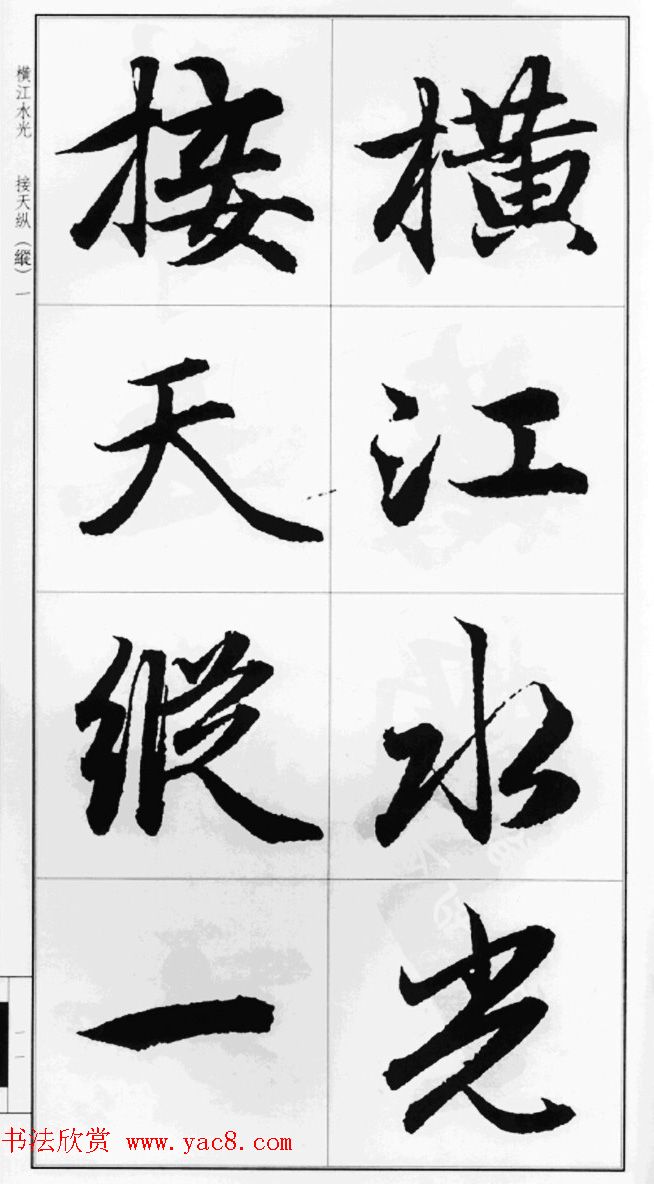 橫江水光
接天縱一
横江水光 接天纵（縱）一
一一
书法欣赏 www.yac8.com